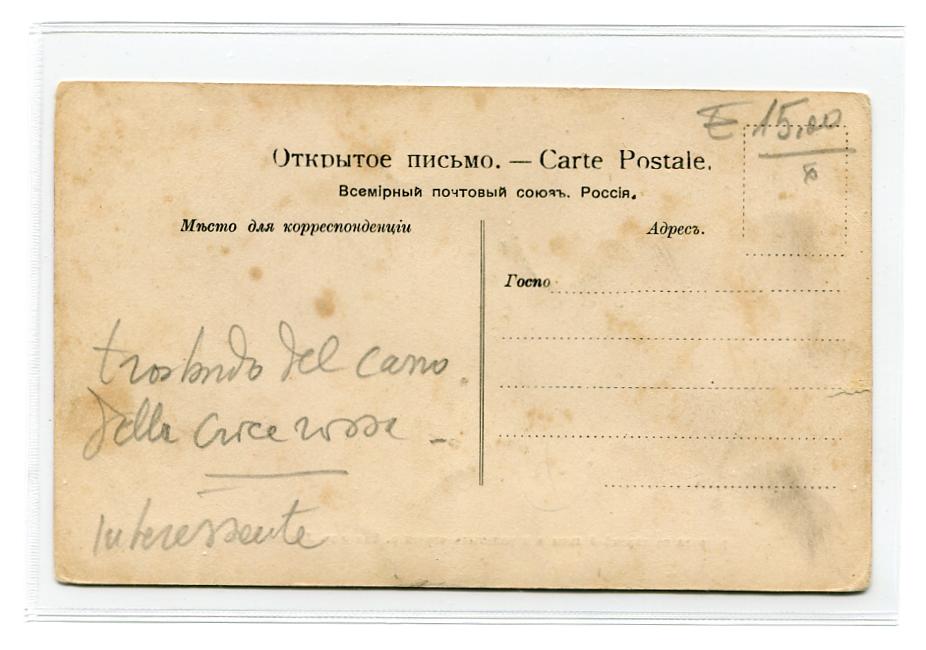 € 15,00
Открытое письмо. — Carte Postale.
Всемірный почтовый союзъ. Россія.
Мѣсто для корреспонденціи
Адресъ.
Госпо
del carro
della croce rossa
Interessante